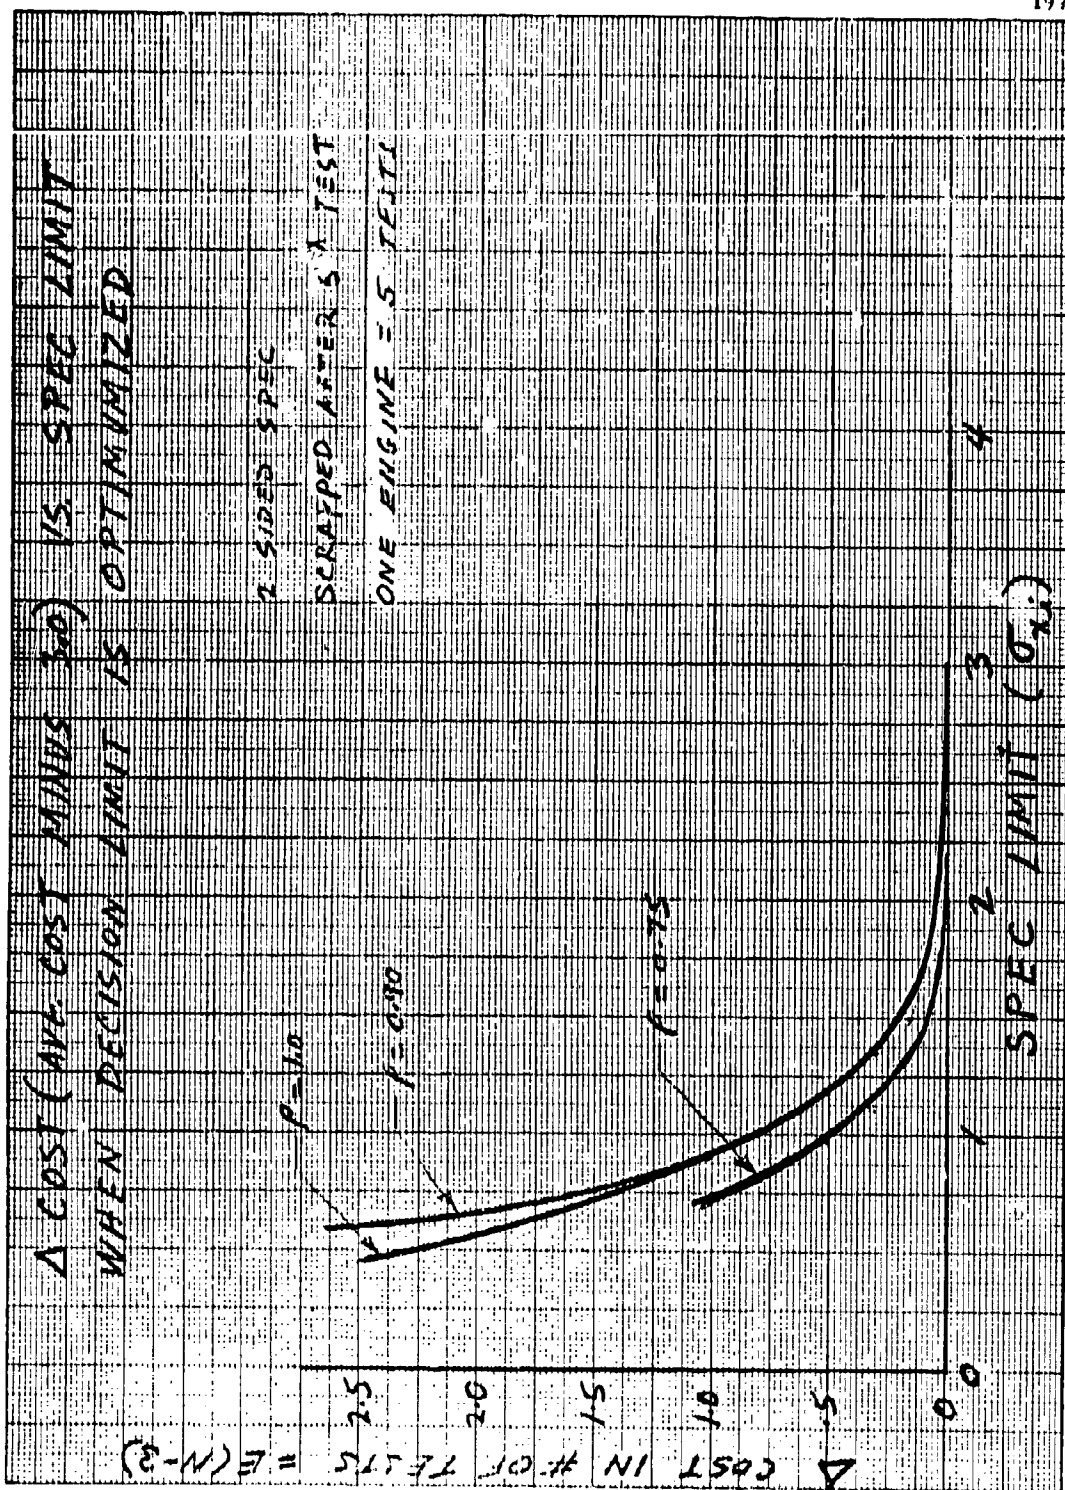 Δ COST (AVE. COST MINUS 3.0) VS. SPEC LIMIT
WHEN DECISION LIMIT IS OPTIMUMIZED
2 SIDED SPEC
SCRAPPED AFTER 5 TEST
ONE ENGINE = 5 TESTS
ρ = 1.0
ρ = 0.90
ρ = 0.75
Δ COST IN # OF TESTS = E(N-3)
2.5
2.0
1.5
1.0
.5
0
0
1
2
3
4
SPEC LIMIT (σxi)